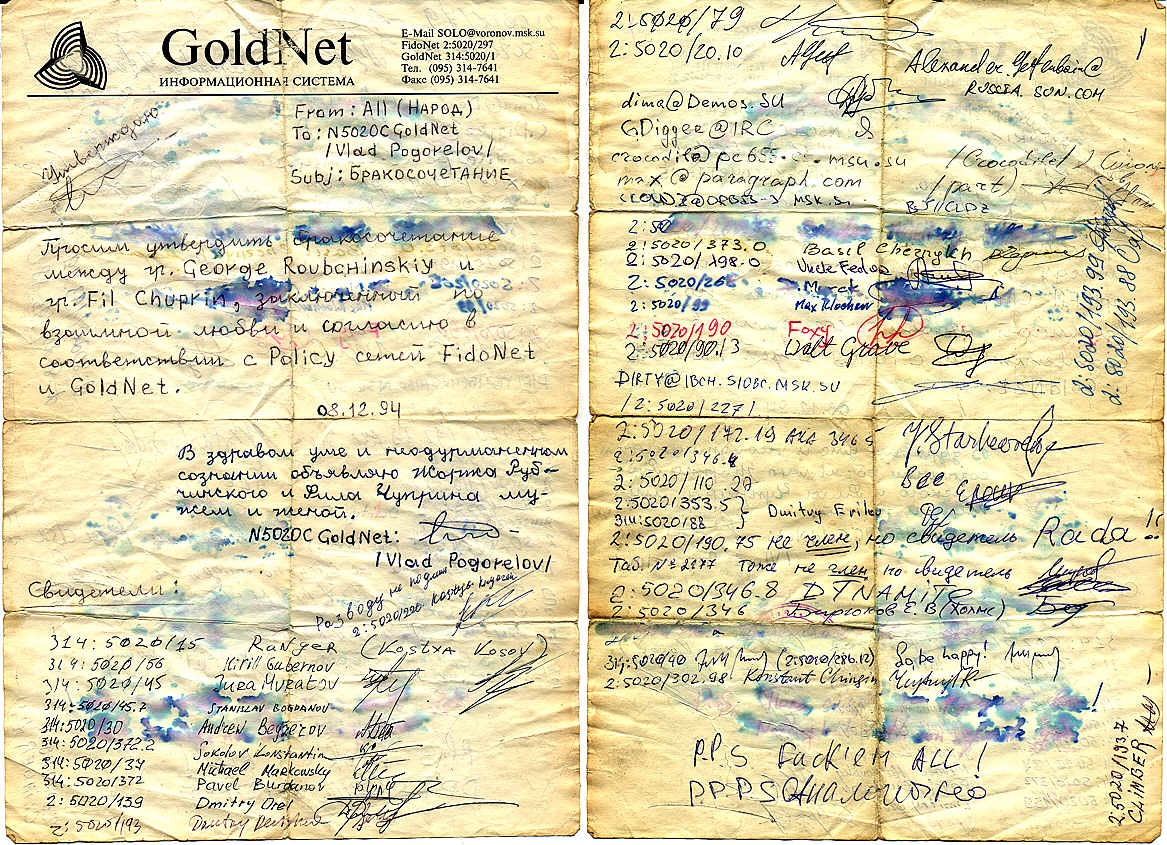 GoldNet
ИНФОРМАЦИОННАЯ СИСТЕМА
E-Mail SOLO@voronov.msk.su
FidoNet 2:5020/297
GoldNet 314:5020/1
Тел. (095) 314-7641
Факс (095) 314-7641
Утверждаю
From: All (НАРОД)
To: N5020C GoldNet
/Vlad Pogorelov/
Subj: БРАКОСОЧЕТАНИЕ
Просим утвердить бракосочетание
между гр. George Roubchinskiy и
гр. Fil Chuprin, заключенный по
взаимной любви и согласию в
соответствии с Policy сетей FidoNet
и GoldNet.
08.12.94
В здравом уме и неодурманенном
сознании объявляю Жоржа Руб-
чинского и Фила Чуприна му-
жем и женой.
N5020C GoldNet:
/Vlad Pogorelov/
Свидетели:
Разводу не подлежит
2:5020/296
314:5020/15 Ranger (Kostxa Kosoy)
314:5020/56 Kirill Gubernov
314:5020/45 Jura Muratov
314:5020/45.7 STANISLAV BOGDANOV
314:5020/30 Andrew
314:5020/372.2 Sokolov Konstantin
314:5020/37 Michael Markowsky
314:5020/372 Pavel Burdanov
2:5020/139 Dmitry Orel
2:5020/193 Dmitry
2:5020/79
2:5020/20.10
Alexander
@
RUSSIA.SUN.COM
dima@Demos.SU
GDigger@IRC
crocodile@pc655. msu.su /Crocodile/
max@paragraph.com /part/
MSK.SU
2:50
2:5020/373.0 Basil Chernykh
2:5020/198.0 Uncle Fedor
2:5020/266 Murat
2:5020/99 Max Klochkov
2:5020/190 Foxy
2:5020/90.13 Dolt Grave
2:5020/193.99
2:5020/193.88
DIRTY@IBCH.SIOBC.MSK.SU
/2:5020/227/
2:5020/172.19 AKA 346.
2:5020/346.4
2:5020/110.27
2:5020/353.5
314:5020/88 Dmitvy
2:5020/190.75 не член, но свидетель Rada!!
Таб № 2277 Тоже не член но свидетель
2:5020/346.8 DYNAMITE
2:5020/346 Е.В (Холмс)
314:5020/40 (2:5020/286.12) So, be happy!
2:5020/302.98 Konstant Chingin
P.P.S Fuck'em ALL!
P.P.P.S Аналогично
2:5020/193.7
CLiMBER